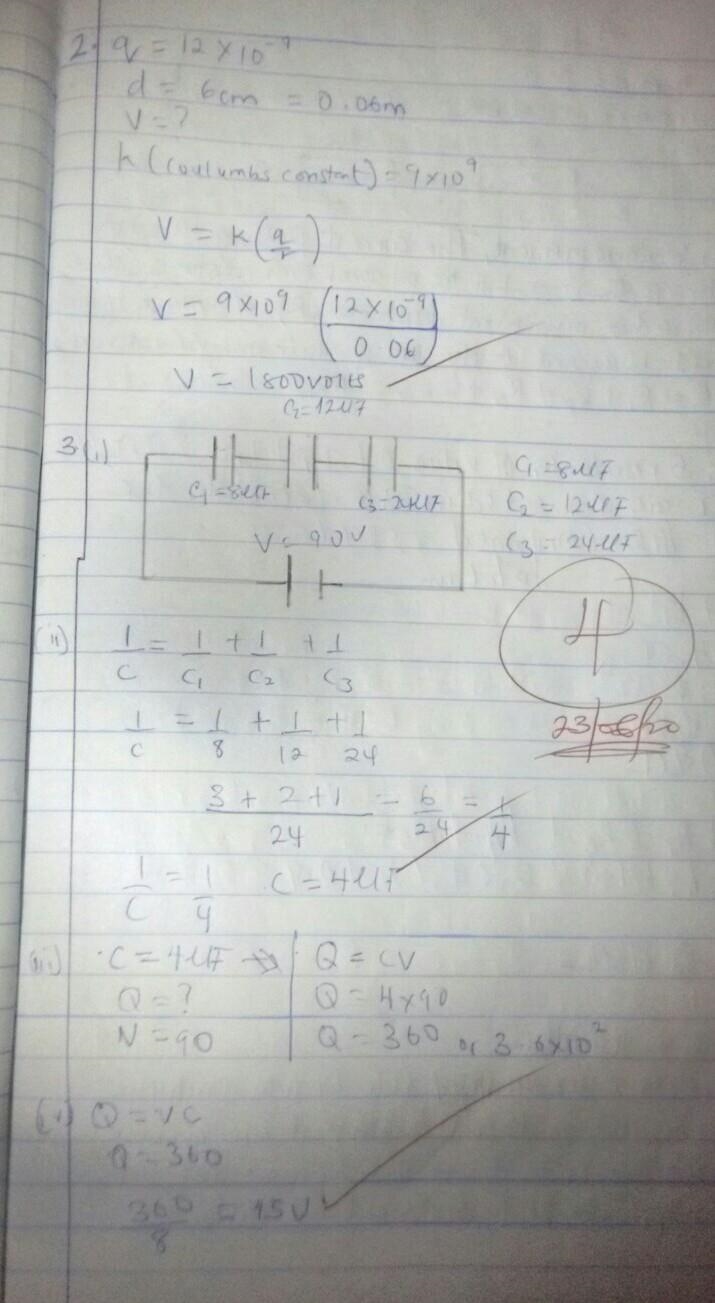 2. q = 12 × 10⁻⁹
d = 6cm = 0.06m
V = ?
k (coulumbs constant) = 9×10⁹
V = k(q/r)
V = 9×10⁹ (12×10⁻⁹/0.06)
V = 1800volts
3(i) C₁=8μF C₂=12μF C₃=24μF
V = 90V
C₁=8μF
C₂=12μF
C₃=24μF
4
(ii) 1/C = 1/C₁ + 1/C₂ + 1/C₃
1/C = 1/8 + 1/12 + 1/24
(3+2+1)/24 = 6/24 = 1/4
1/C = 1/4 C=4μF
(iii) C=4μF → Q = CV
Q = ? Q = 4×90
V = 90 Q = 360 or 3.6×10²
Q = VC
Q = 360
360/8 = 45V